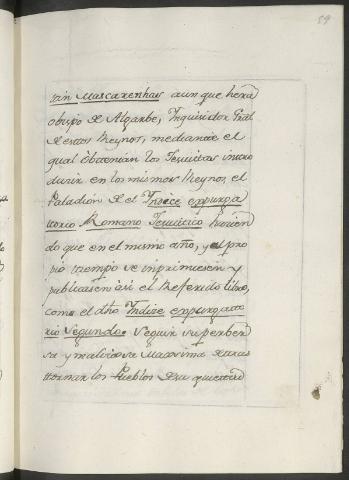 59
tin Mascarenhas aun que hera
obispo de Algarbe, Inquisidor Gral
de estos Reynos, mediante el
qual obtenian los Jesuitas intro
ducir en los mismos Reynos el
Paladion de el Indice expurga
ttorio Romano Jesuitico hacien
do que en el mismo año, y al pro
pio tiempo se inprimiesen y
publicasen asi el Referido libro,
como el dho Indice expurgato
rio Segundo. Seguir su perber
sa y maliciosa Maxima
ttornar los Pueblos su quietud